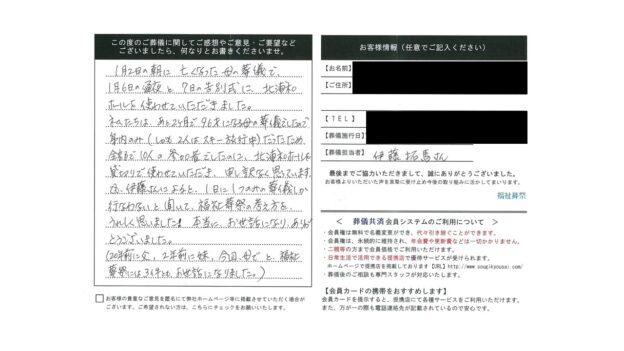 この度のご葬儀に関してご感想やご意見・ご要望など
ございましたら、何なりとお書きくださいませ。
1月2日の朝に亡くなった母の葬儀で、
1月6日の通夜と7日の告別式に、北浦和
ホールを使わせていただきました。
私たちは、あと2ヶ月で96才になる母の葬儀でしたので
身内のみ(しかも2人はスキー旅行中)だったため、
全部で10人の参加者でしたのに、北浦和ホールを
貸切りで使わせていただき、申し訳なく思っています。
又、伊藤さんによると、1日に1つのみの葬儀しか
行なわないと聞いて、福祉葬祭の考え方を、
うれしく思いました!本当に、お世話になり、ありが
とうございました。
(20年前に父、2年前に妹、今回、母でと、福祉
葬祭には3人とも、お世話になりました。)
お客様の貴重なご意見を匿名にて弊社ホームページ等に掲載させていただく場合が
ございます。ご希望されない方は、こちらにチェックをお願いいたします。
お客様情報(任意でご記入ください)
【お名前】
【ご住所】
【TEL】
【葬儀施行日】
【葬儀担当者】 伊藤拓馬さん
最後までご協力いただきまして、誠にありがとうございました。
お客様よりいただいた声を真摯に受け止め今後の取り組みに活かしてまいります。
福祉葬祭
< 葬儀共済会員システムのご利用について >
・会員権は無料で名義変更ができ、代々引き継ぐことができます。
・会員権は、永続的に維持され、年会費や更新費などは一切かかりません。
・二親等の方まで会員価格でご利用いただけます。
・日常生活で活用できる提携店で優待サービスが受けられます。
ホームページで提携店を掲載しております【URL】http://www.sougikyousai.com/
・葬儀後のご相談も専門スタッフが対応いたします。
【会員カードの携帯をおすすめします】
会員カードを提示すると、提携店にて各種サービスをご利用いただけます。
また、万が一の際も電話連絡先が記載されているので安心です。